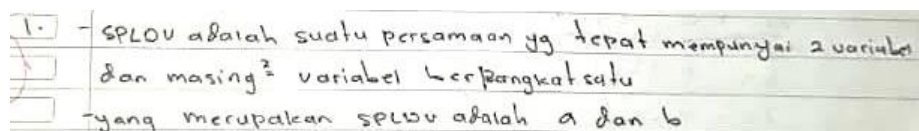 1. - SPLDV adalah suatu persamaan yg tepat mempunyai 2 variabel
dan masing² variabel berpangkat satu
- yang merupakan SPLDV adalah a dan b